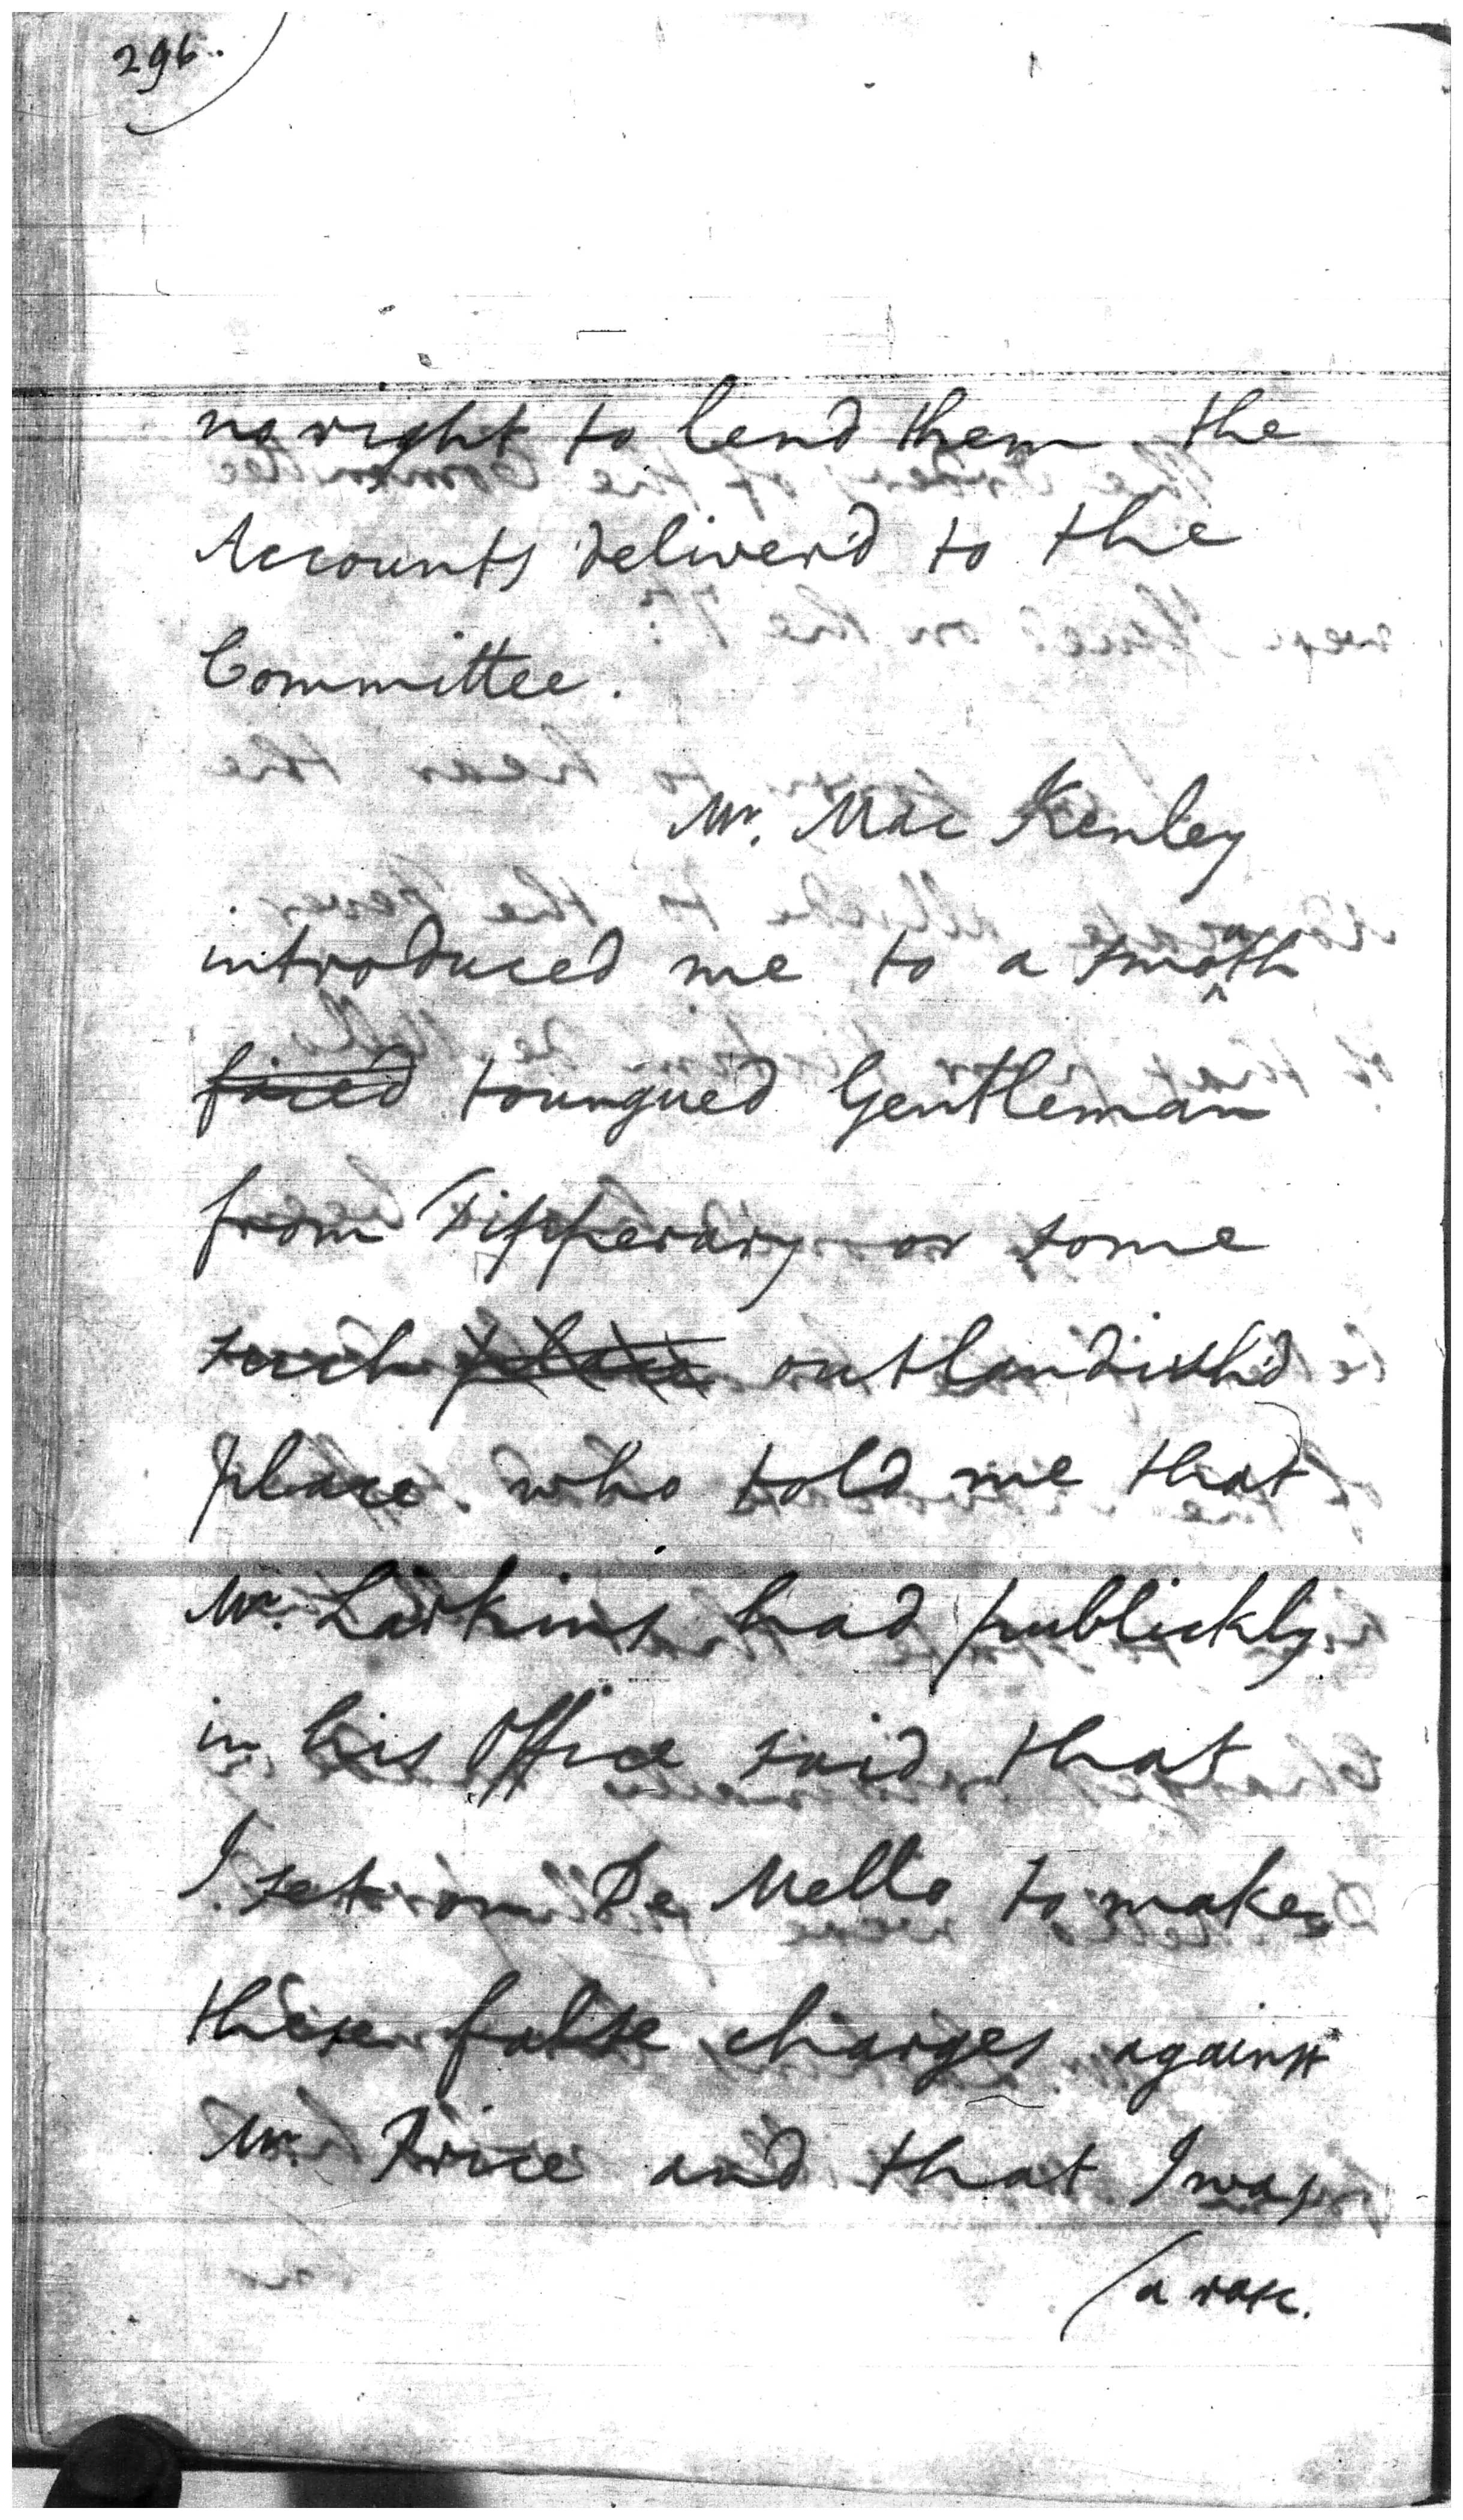 296.
no right to lend them the
Accounts deliver'd to the
Committee.
Mr. Mac Kenley
introduced me to a smooth
faced toungued Gentleman
from Tipperary or some
such place outlandish'd
place who told me that
Mr. Larkins had publickly
in his Office said that
I set on De Mello to make
these false charges against
Mr. Price and that I was
a rasc.